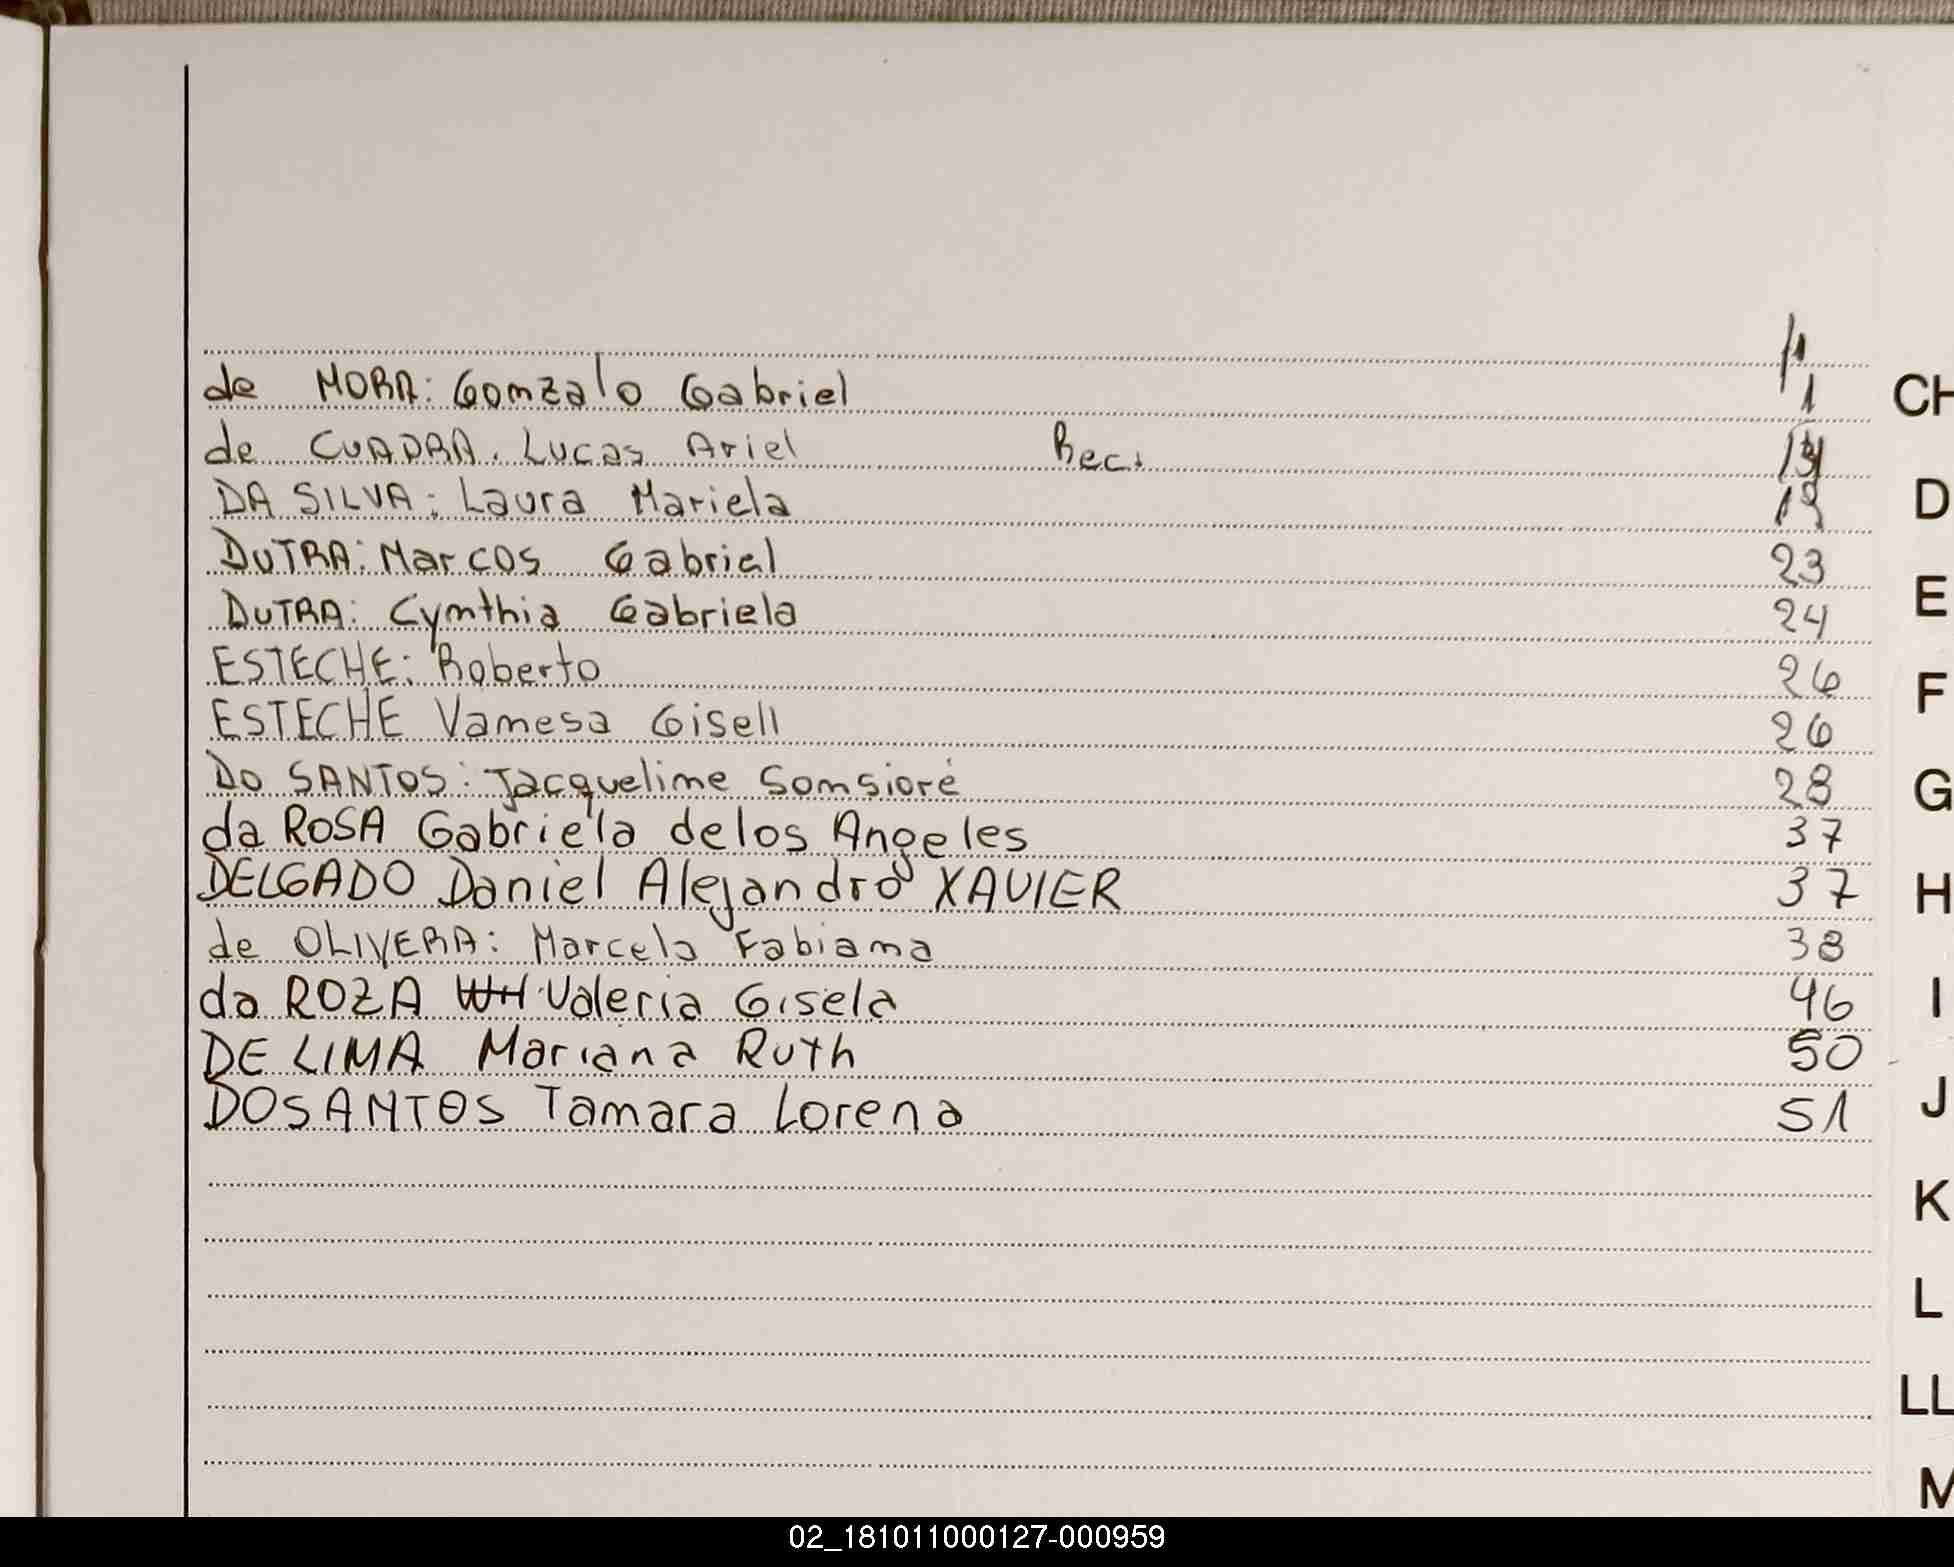 de MORA: Gonzalo Gabriel 1
de CUADRA. Lucas Ariel Rec.
DA SILVA: Laura Mariela 19
DUTRA: Marcos Gabriel 23
DUTRA: Cynthia Gabriela 24
ESTECHE: Roberto 26
ESTECHE Vanesa Gisell 26
Do SANTOS: Jacqueline Sonsioré 28
da ROSA Gabriela delos Angeles 37
DELGADO Daniel Alejandro XAVIER 37
de OLIVERA: Marcela Fabiana 38
da ROZA Valeria Gisela 46
DE LIMA Mariana Ruth 50
DOSANTOS Tamara Lorena 51
CH
D
E
F
G
H
I
J
K
L
LL
M
02_181011000127-000959